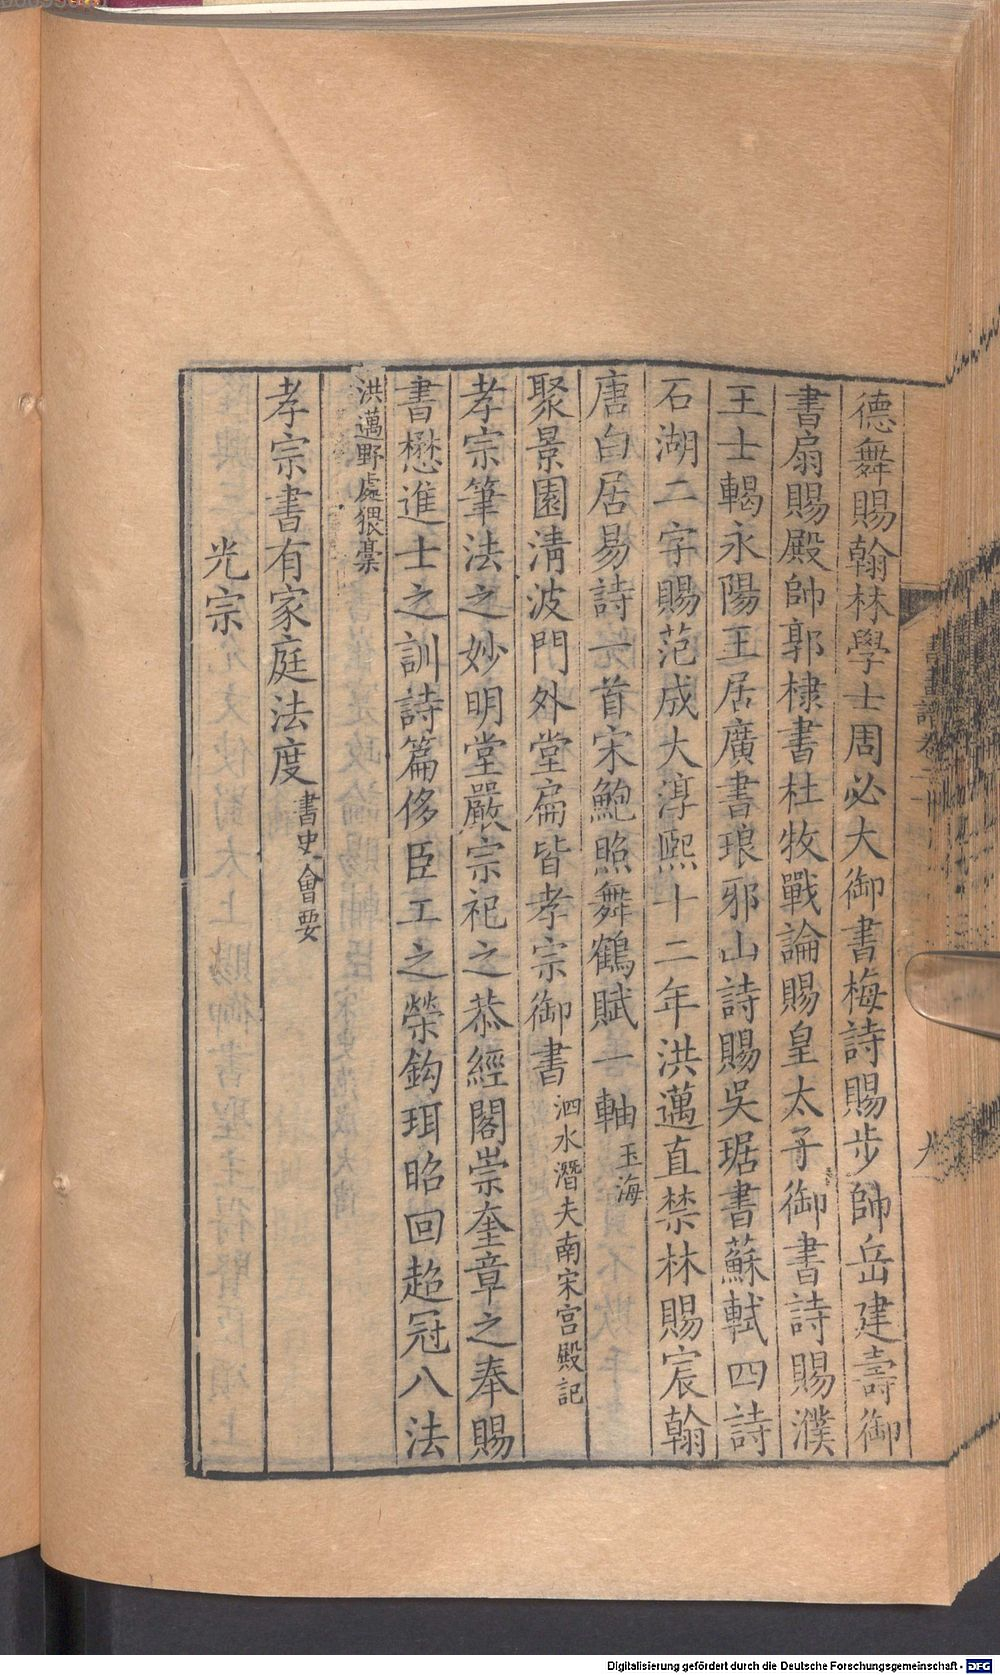 德舞賜翰林學士周必大御書梅詩賜步帥岳建壽御
書扇賜殿帥郭棣書杜牧戰論賜皇太子御書詩賜濮
王士輵永陽王居廣書琅邪山詩賜吳琚書蘇軾四詩
石湖二字賜范成大淳熙十二年洪邁直禁林賜宸翰
唐白居易詩一首宋鮑照舞鶴賦一軸玉海
聚景園淸波門外堂扁皆孝宗御書泗水潛夫南宋宮殿記
孝宗筆法之妙明堂嚴宗祀之恭經閣崇奎章之奉賜
書懋進士之訓詩篇侈臣工之榮鈎珥昭回超冠八法
洪邁野處猥稾
孝宗書有家庭法度書史會要
光宗
Digitalisierung gefördert durch die Deutsche Forschungsgemeinschaft - DFG